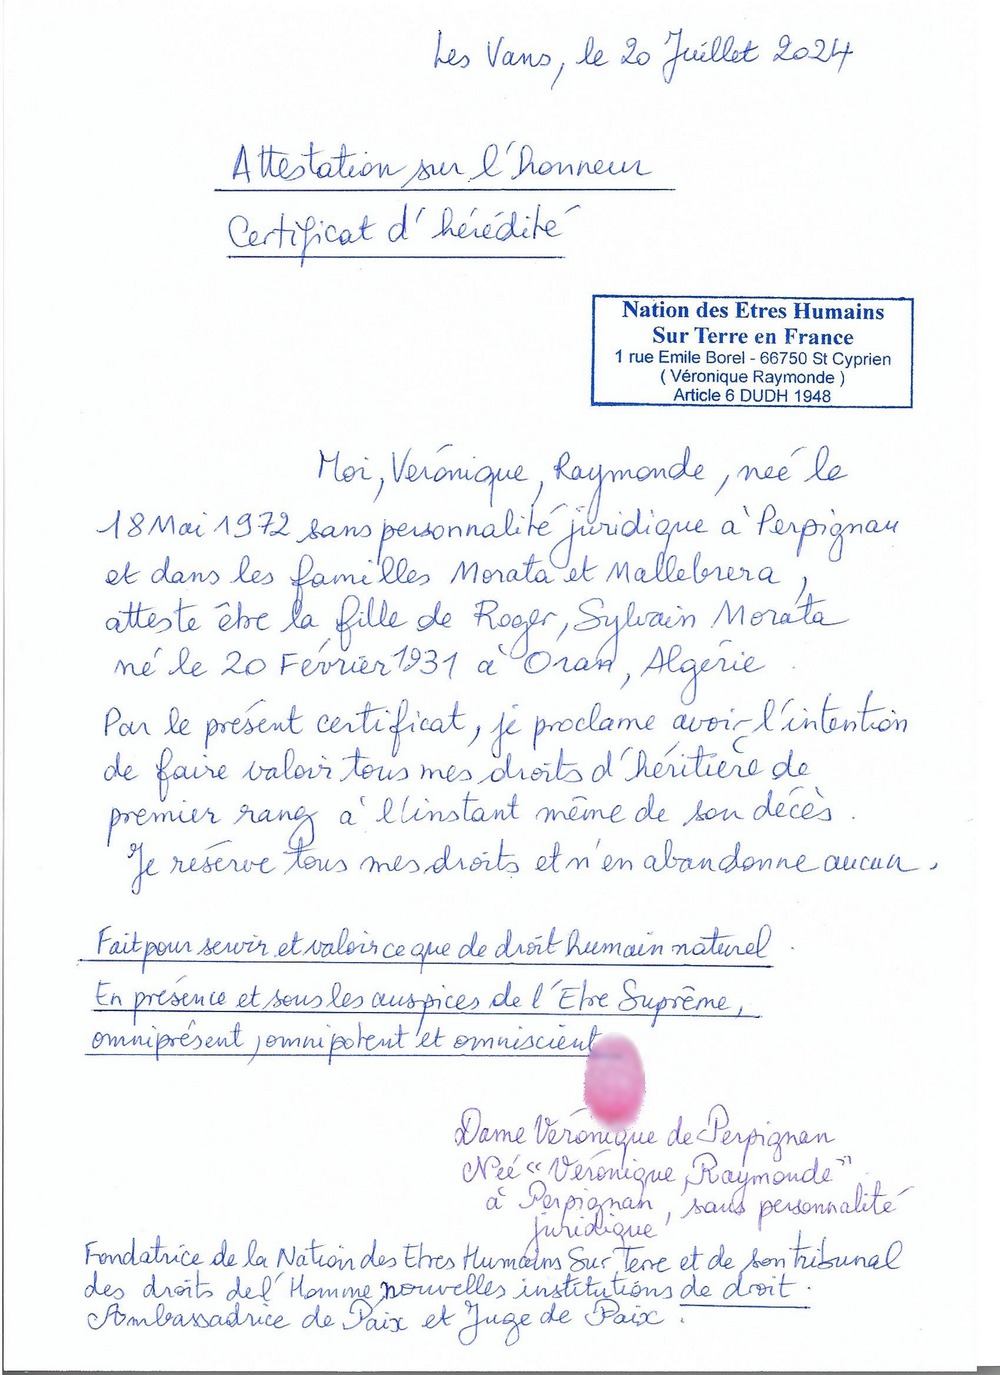 Les Vans, le 20 Juillet 2024
Attestation sur l'honneur
Certificat d'hérédité
Nation des Etres Humains
Sur Terre en France
1 rue Emile Borel - 66750 St Cyprien
( Véronique Raymonde )
Article 6 DUDH 1948
Moi, Véronique, Raymonde, neé le
18 Mai 1972 sans personnalité juridique à Perpignan
et dans les familles Morata et Mallebrera,
atteste être la fille de Roger, Sylvain Morata
né le 20 Février 1931 à Oran, Algérie.
Par le présent certificat, je proclame avoir l'intention
de faire valoir tous mes droits d'héritière de
premier rang à l'instant même de son décès.
Je réserve tous mes droits et n'en abandonne aucun.
Fait pour servir et valoir ce que de droit humain naturel.
En présence et sous les auspices de l'Etre Suprême,
omniprésent, omnipotent et omniscient
Dame Véronique de Perpignan
Neé "Véronique, Raymonde"
à Perpignan, sans personnalité
juridique
Fondatrice de la Nation des Etres Humains Sur Terre et de son tribunal
des droits de l'Homme nouvelles institutions de droit.
Ambassadrice de Paix et Juge de Paix.